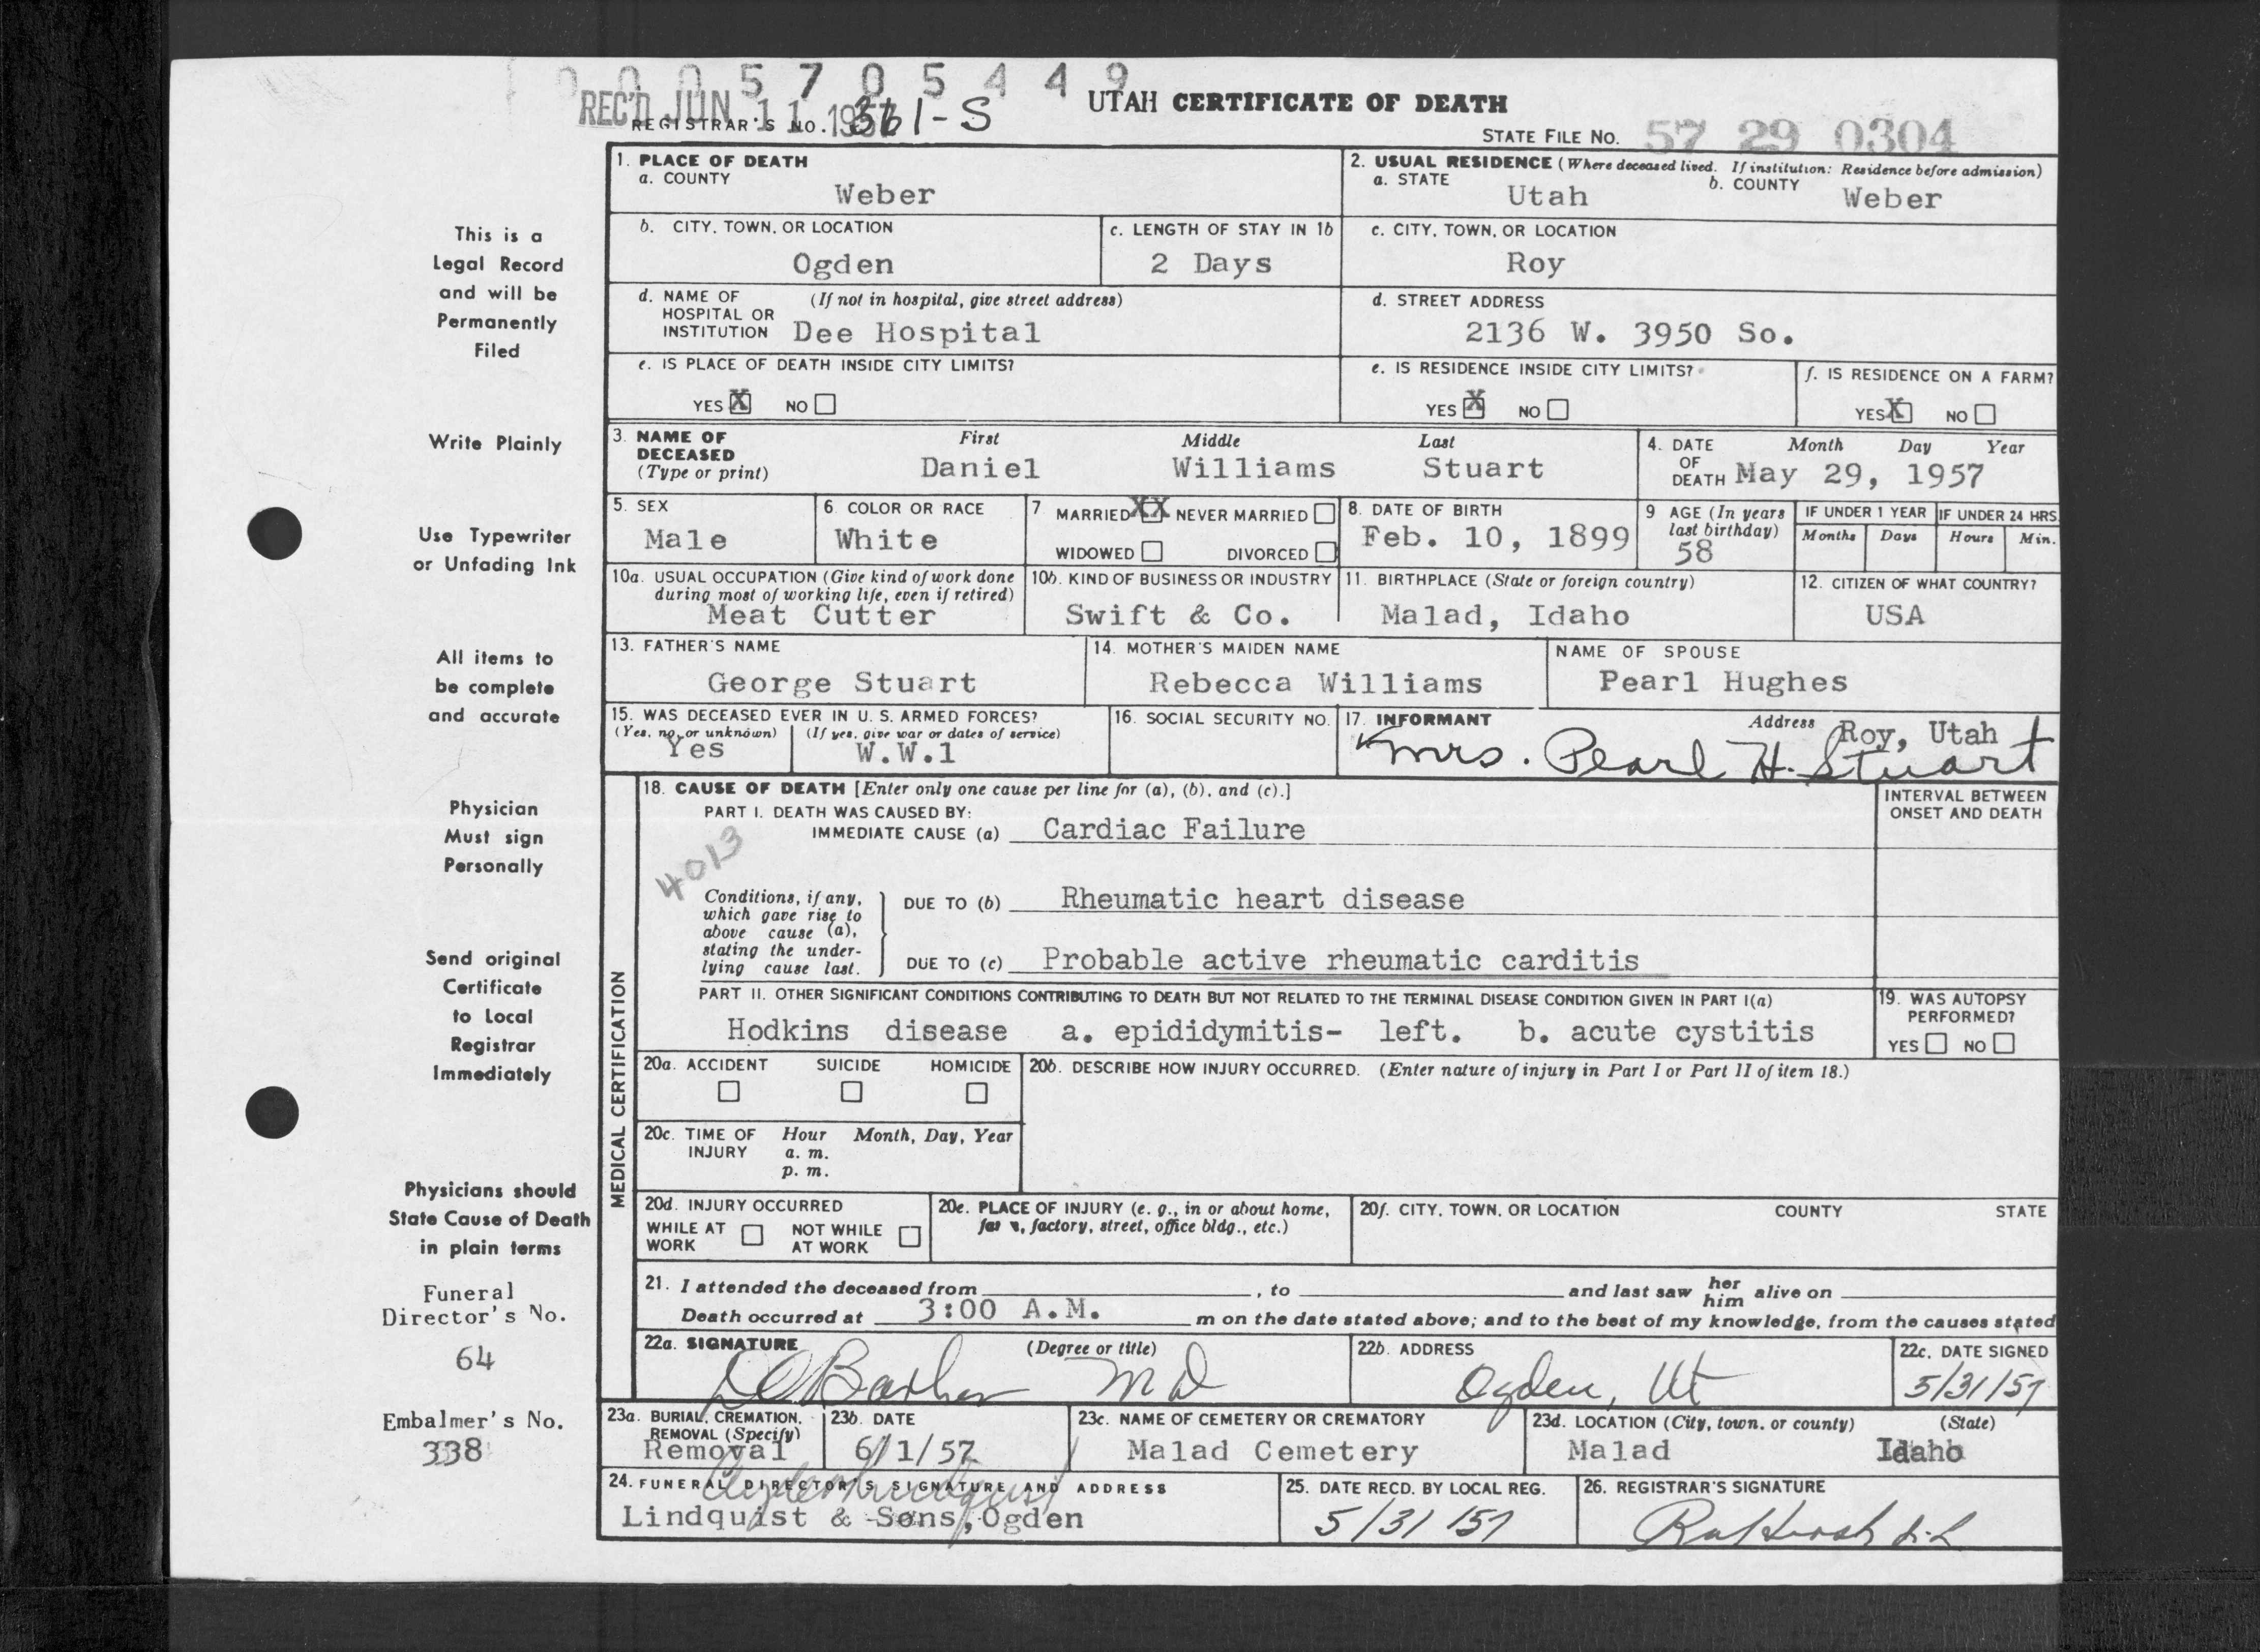 0 0 0 5 7 0 5 4 4 9
REC'D JUN 11 1957
REGISTRAR'S NO. 361-S
UTAH CERTIFICATE OF DEATH
STATE FILE NO. 57 29 0304
This is a
Legal Record
and will be
Permanently
Filed
Write Plainly
Use Typewriter
or Unfading Ink
All items to
be complete
and accurate
Physician
Must sign
Personally
Send original
Certificate
to Local
Registrar
Immediately
Physicians should
State Cause of Death
in plain terms
Funeral
Director's No.
64
Embalmer's No.
338
1. PLACE OF DEATH
a. COUNTY
Weber
2. USUAL RESIDENCE (Where deceased lived. If institution: Residence before admission)
a. STATE Utah b. COUNTY Weber
b. CITY, TOWN, OR LOCATION
Ogden
c. LENGTH OF STAY IN 1b
2 Days
c. CITY, TOWN, OR LOCATION
Roy
d. NAME OF HOSPITAL OR INSTITUTION (If not in hospital, give street address)
Dee Hospital
d. STREET ADDRESS
2136 W. 3950 So.
e. IS PLACE OF DEATH INSIDE CITY LIMITS?
YES X NO
e. IS RESIDENCE INSIDE CITY LIMITS?
YES X NO
f. IS RESIDENCE ON A FARM?
YES X NO
3. NAME OF DECEASED (Type or print)
First Middle Last
Daniel Williams Stuart
4. DATE OF DEATH Month Day Year
May 29, 1957
5. SEX
Male
6. COLOR OR RACE
White
7 MARRIED XX NEVER MARRIED
WIDOWED DIVORCED
8. DATE OF BIRTH
Feb. 10, 1899
9 AGE (In years last birthday)
58
IF UNDER 1 YEAR IF UNDER 24 HRS.
Months Days Hours Min.
10a. USUAL OCCUPATION (Give kind of work done during most of working life, even if retired)
Meat Cutter
10b. KIND OF BUSINESS OR INDUSTRY
Swift & Co.
11. BIRTHPLACE (State or foreign country)
Malad, Idaho
12. CITIZEN OF WHAT COUNTRY?
USA
13. FATHER'S NAME
George Stuart
14. MOTHER'S MAIDEN NAME
Rebecca Williams
NAME OF SPOUSE
Pearl Hughes
15. WAS DECEASED EVER IN U. S. ARMED FORCES?
(Yes, no, or unknown) (If yes, give war or dates of service)
Yes W.W.1
16. SOCIAL SECURITY NO.
17. INFORMANT Address
Roy, Utah
Mrs. Pearl H. Stuart
MEDICAL CERTIFICATION
18. CAUSE OF DEATH [Enter only one cause per line for (a), (b), and (c).]
INTERVAL BETWEEN ONSET AND DEATH
PART I. DEATH WAS CAUSED BY:
IMMEDIATE CAUSE (a) Cardiac Failure
4013
Conditions, if any, which gave rise to above cause (a), stating the underlying cause last.
DUE TO (b) Rheumatic heart disease
DUE TO (c) Probable active rheumatic carditis
PART II. OTHER SIGNIFICANT CONDITIONS CONTRIBUTING TO DEATH BUT NOT RELATED TO THE TERMINAL DISEASE CONDITION GIVEN IN PART I(a)
Hodkins disease a. epididymitis- left. b. acute cystitis
19. WAS AUTOPSY PERFORMED?
YES NO
20a. ACCIDENT SUICIDE HOMICIDE
20b. DESCRIBE HOW INJURY OCCURRED. (Enter nature of injury in Part I or Part II of item 18.)
20c. TIME OF INJURY Hour Month, Day, Year
a. m.
p. m.
20d. INJURY OCCURRED
WHILE AT WORK NOT WHILE AT WORK
20e. PLACE OF INJURY (e. g., in or about home, farm, factory, street, office bldg., etc.)
20f. CITY, TOWN, OR LOCATION COUNTY STATE
21. I attended the deceased from , to and last saw her him alive on
Death occurred at 3:00 A.M. m on the date stated above; and to the best of my knowledge, from the causes stated
22a. SIGNATURE (Degree or title)
MD
22b. ADDRESS
Ogden, Ut
22c. DATE SIGNED
5/31/57
23a. BURIAL, CREMATION, REMOVAL (Specify)
Removal
23b. DATE
6/1/57
23c. NAME OF CEMETERY OR CREMATORY
Malad Cemetery
23d. LOCATION (City, town, or county) (State)
Malad Idaho
24. FUNERAL DIRECTOR'S SIGNATURE AND ADDRESS
Lindquist & Sons, Ogden
25. DATE RECD. BY LOCAL REG.
5/31/57
26. REGISTRAR'S SIGNATURE